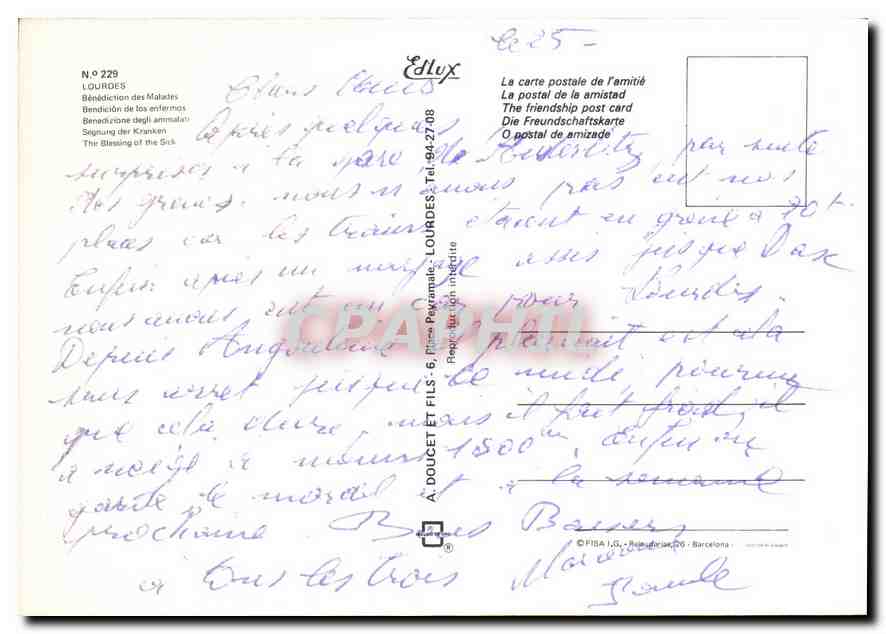 N.º 229
LOURDES
Bénédiction des Malades
Bendición de los enfermos
Benedizione degli ammalati
Segnung der Kranken
The Blessing of the Sick
Edlux
A. DOUCET ET FILS - 6, Place Peyramale - LOURDES - Tel. 94-27-08
Reproduction interdite
®
La carte postale de l'amitié
La postal de la amistad
The friendship post card
Die Freundschaftskarte
O postal de amizade
© FISA I.G. - Palaudarias, 26 - Barcelona -
CPAPHIL
le 25 -
Chers
Après quelques
surprises à la gare de Austerlitz par suite
des grèves. nous n'avons pas eu nos
places car les trains étaient en grève à 70%
Enfin après un voyage assis jusque Dax
nous avons eut un car pour Lourdes.
Depuis Angoulême il pleuvait et cela
sans arret jusque le pourvu
que cela dure, mais il fait froid, il
a neigé à 1500m. Enfin on
garde le moral et à la semaine
prochaine. Bons Baisers
à tous les trois